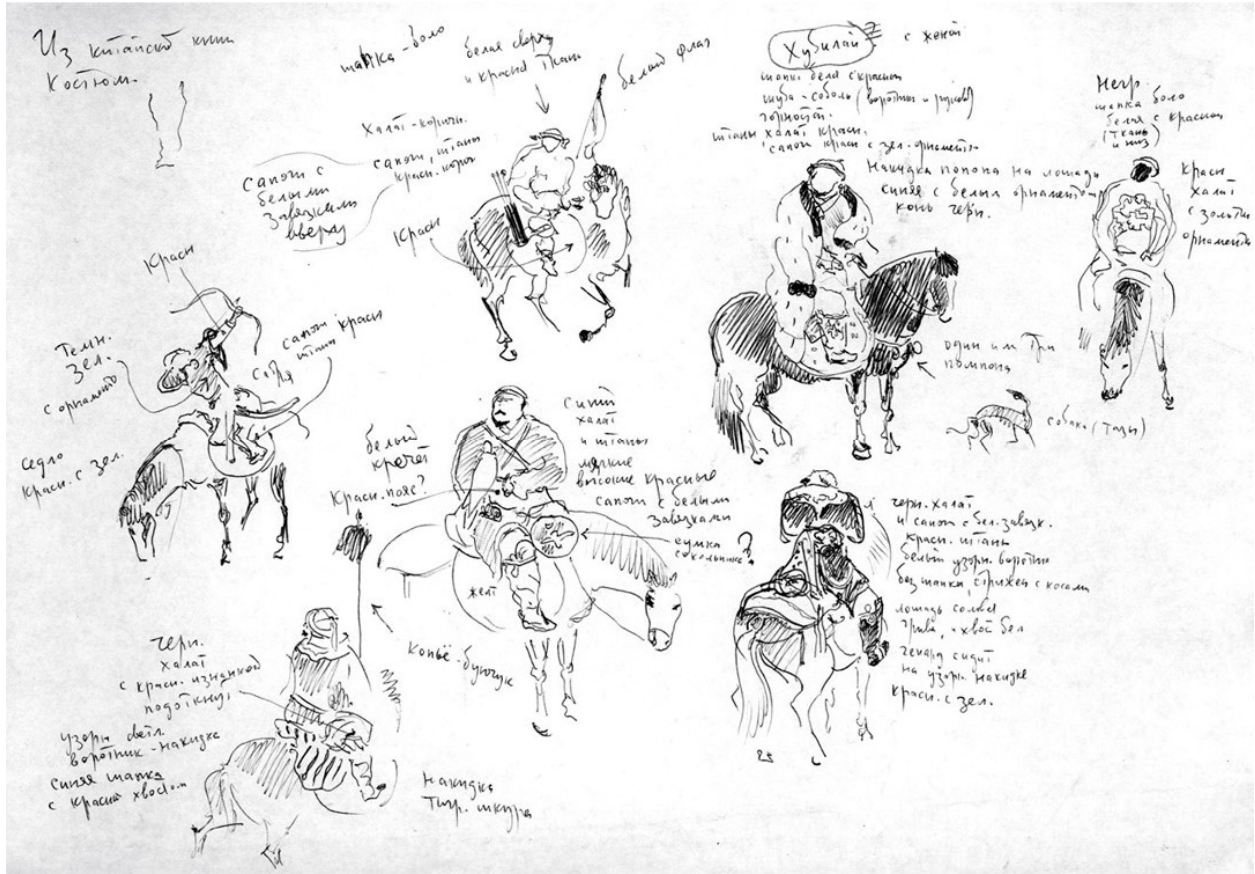 Из китайской книги
Костюм.
шапка-боло
белая сверху
и красна ткань
белый флаг
Халат-коричн.
сапоги, штаны
красн. корич
Сапоги с
белыми
завязками
вверху
Красн
Хубилай
с женой
шапка бела с красной
шуба-соболь (воротник и рукава)
горностай.
штаны халат красн.
сапоги красн с зел. орнаменто
Накидка попона на лошади
синяя с белым орнаментом
конь черн.
Негр.
шапка боло
белая с красной
(ткань
и низ
красн
халат
с золотым
орнаменто
один или три
помпона
собака (тазы)
Красн
Темн.
зел.
с орнаменто
сапоги красн
штаны
седло
красн. с зел.
белый
кречет
Красн. пояс?
Синий
халат
и штаны
мягкие
высокие красные
сапоги с белыми
завязками
сумка
сокольника?
желт
черн. халат
и сапоги с бел. завязк.
красн. штаны
белый узорн. воротник
без шапки, стрижен с косами
лошадь солов
грива, и хвост бел
гепард сидит
на узорн. накидке
красн. с зел.
копьё-бунчук
черн.
халат
с красн. изнанкой
подоткнут
узорн светл.
воротник-накидка
синяя шапка
с красным хвостом
Накидка
тигр. шкура